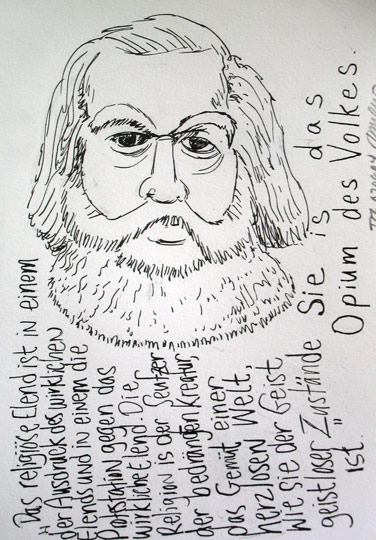 "Das religiöse Elend ist in einem
der Ausdruck des wirklichen
Elends und in einem die
Protstation gegen das
wirkliche Elend. Die
Religion is der Seufzer
der bedrängten Kreatur,
das Gemüt einer
herzlosen Welt,
Wie sie der Geist
geistloser Zustände
ist."
Sie is das
Opium des Volkes.